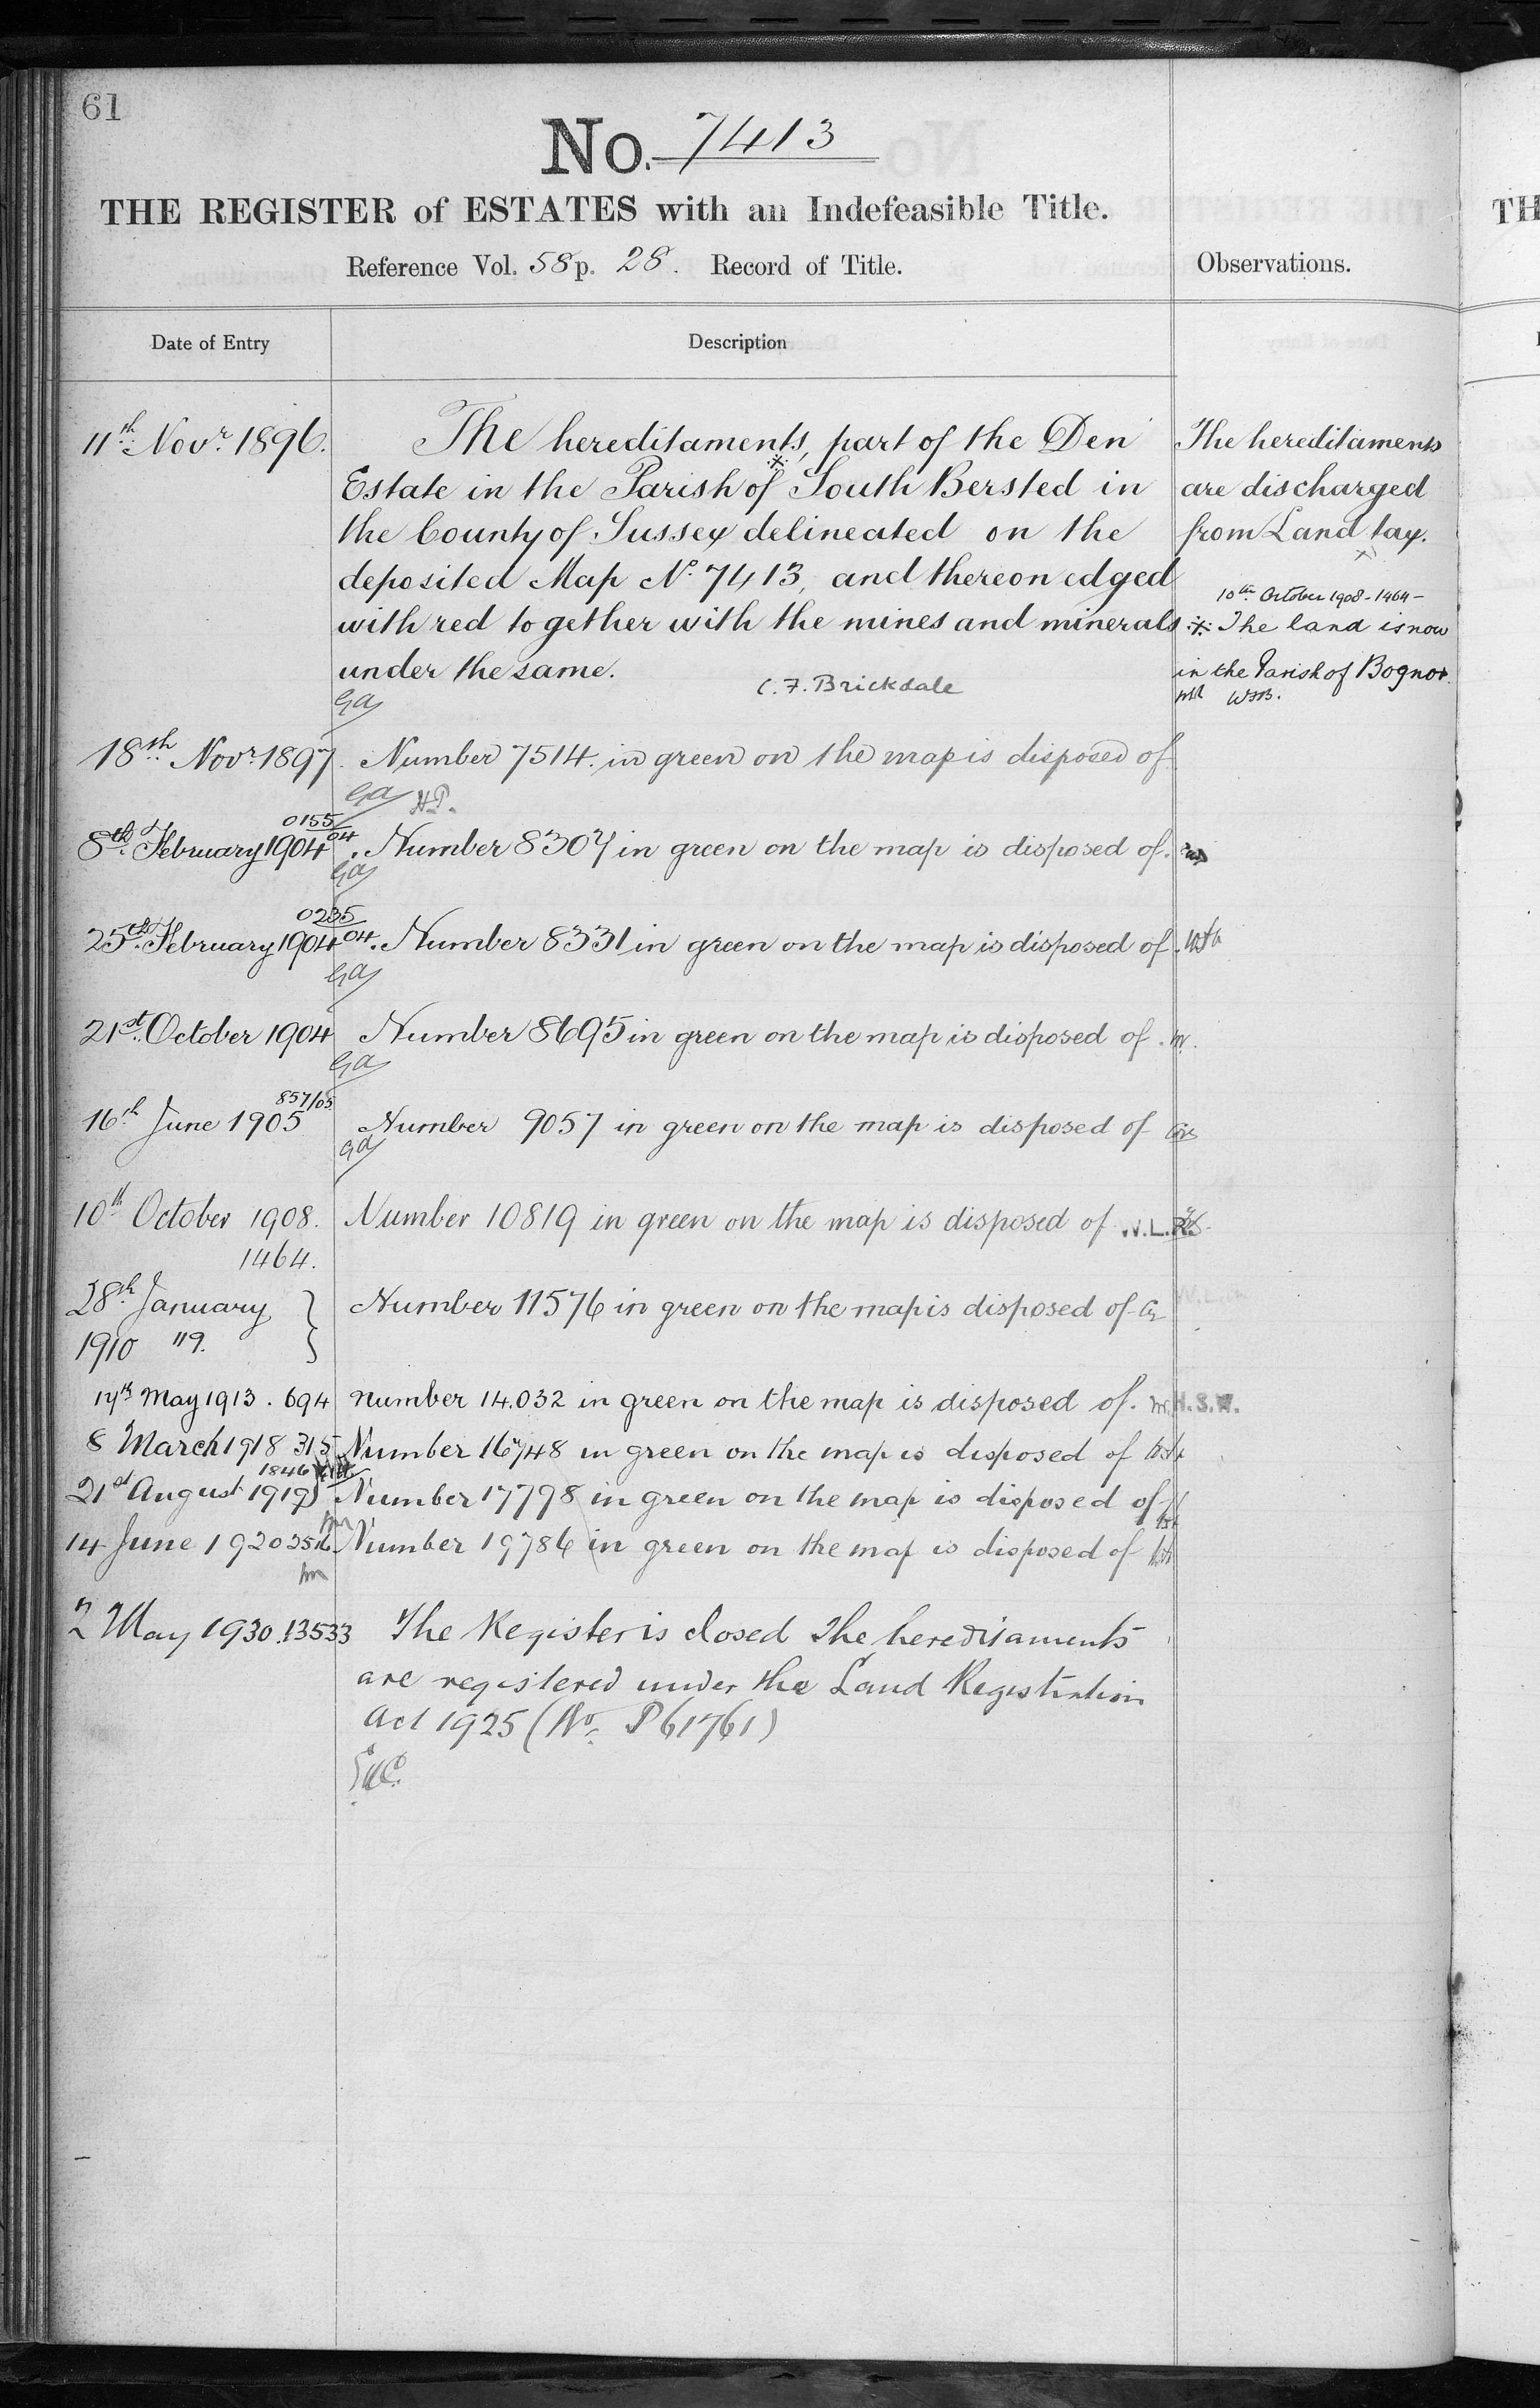 61
No. 7413
THE REGISTER of ESTATES with an Indefeasible Title.
Reference Vol. 58 p. 28. Record of Title.
Observations.
Date of Entry
Description
11th Novr. 1896.
The hereditaments, part of the Den
Estate in the Parish of ※ South Bersted in
the County of Sussex delineated on the
deposited Map No. 7413, and thereon edged
with red together with the mines and minerals
under the same.
C. F. Brickdale
Ga
The hereditaments
are discharged
from Land tax.
10th October 1908 - 1464 -
※ The land is now
in the Parish of Bognor.
18th Novr. 1897. Number 7514. in green on the map is disposed of
Ga H.P.
0155/04
8th February 1904. Number 8307 in green on the map is disposed of.
Ga
0235/04.
25th February 1904 Number 8331 in green on the map is disposed of.
Ga
21st October 1904 Number 8695 in green on the map is disposed of.
Ga
857/05
16th June 1905 Number 9057 in green on the map is disposed of
Ga
10th October 1908. Number 10819 in green on the map is disposed of
1464.
28th January } Number 11576 in green on the map is disposed of
1910 119. }
14th May 1913. 694 number 14.032 in green on the map is disposed of. H.S.W.
8 March 1918 315 Number 16748 in green on the map is disposed of
1846
21st August 1919 Number 17798 in green on the map is disposed of
14 June 1920 2516 Number 19786 in green on the map is disposed of
2 May 1930. 13533 The Register is closed The hereditaments
are registered under the Land Registration
Act 1925 (No. P61761)